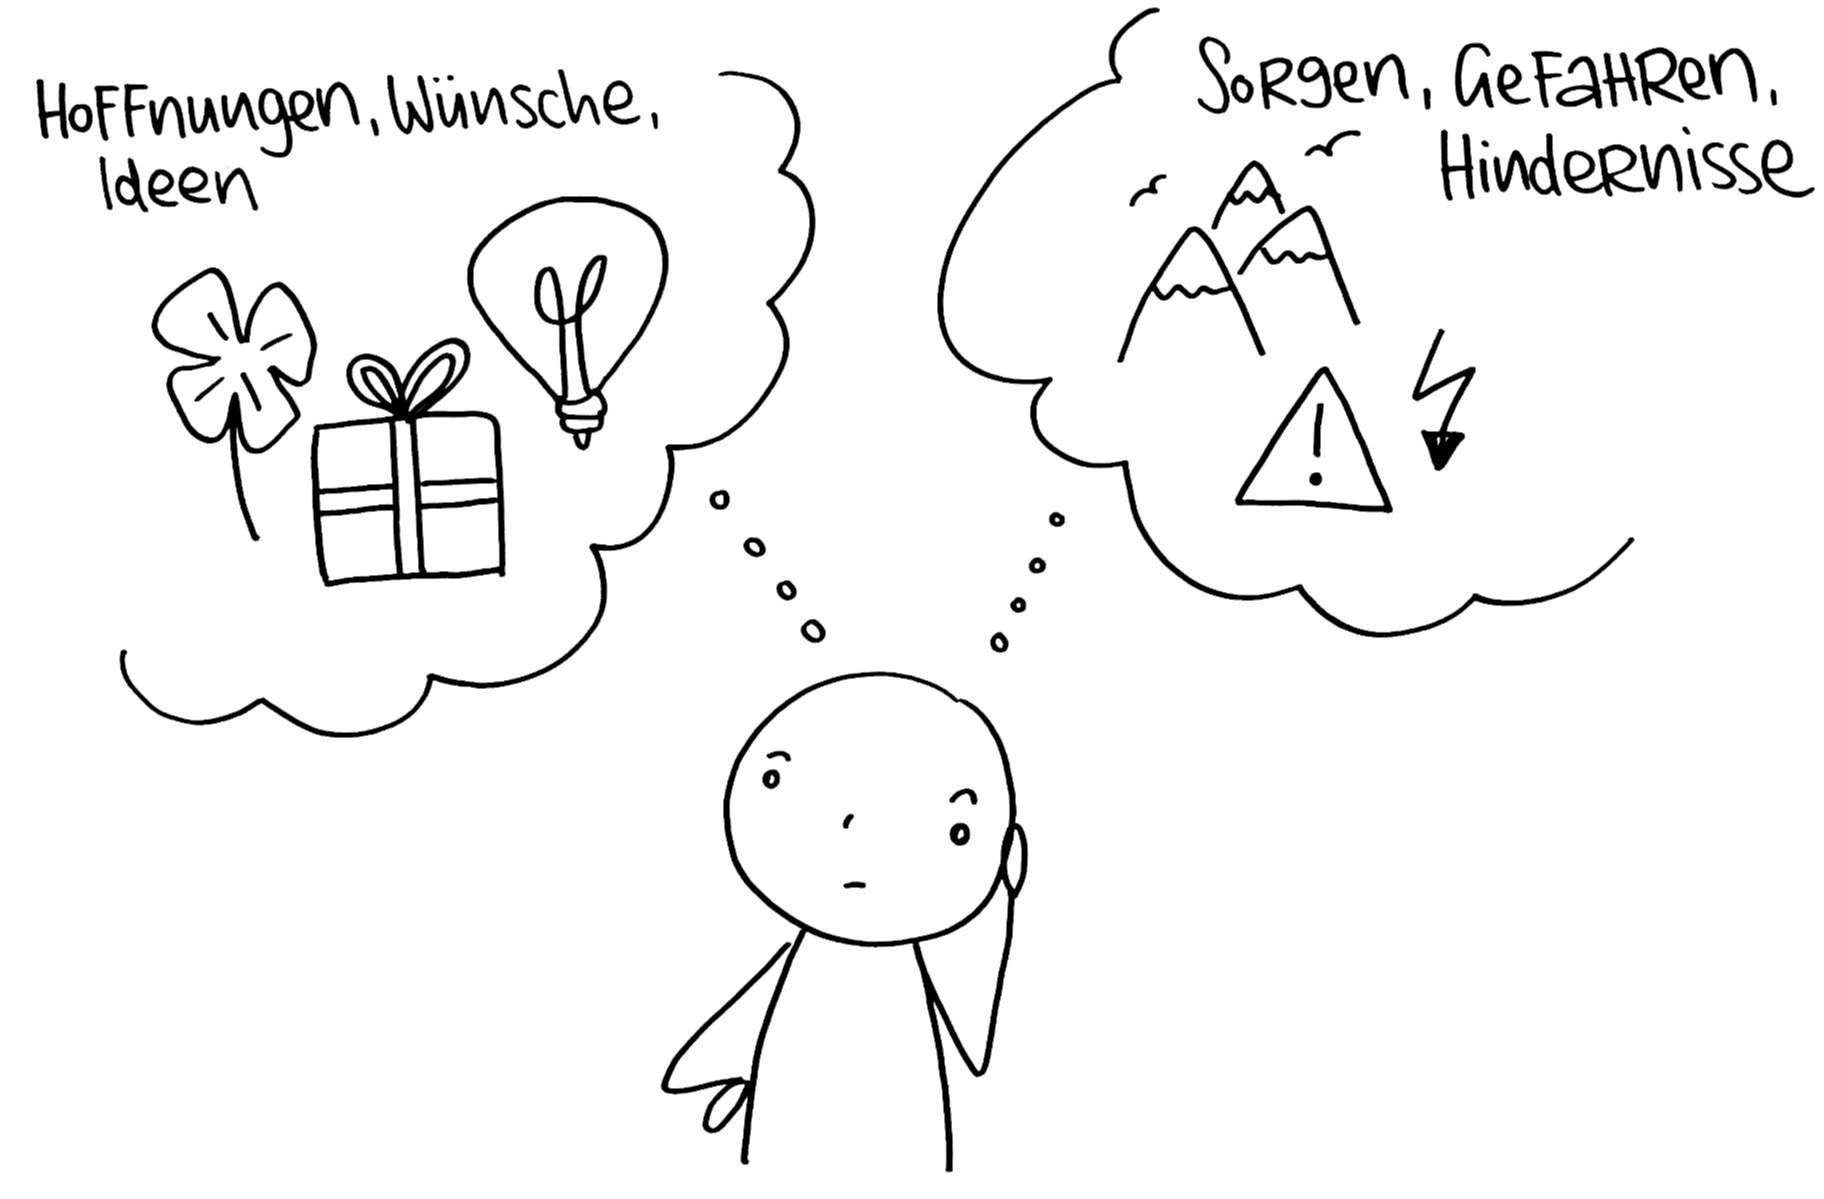 Hoffnungen, Wünsche,
Ideen
Sorgen, Gefahren,
Hindernisse
!